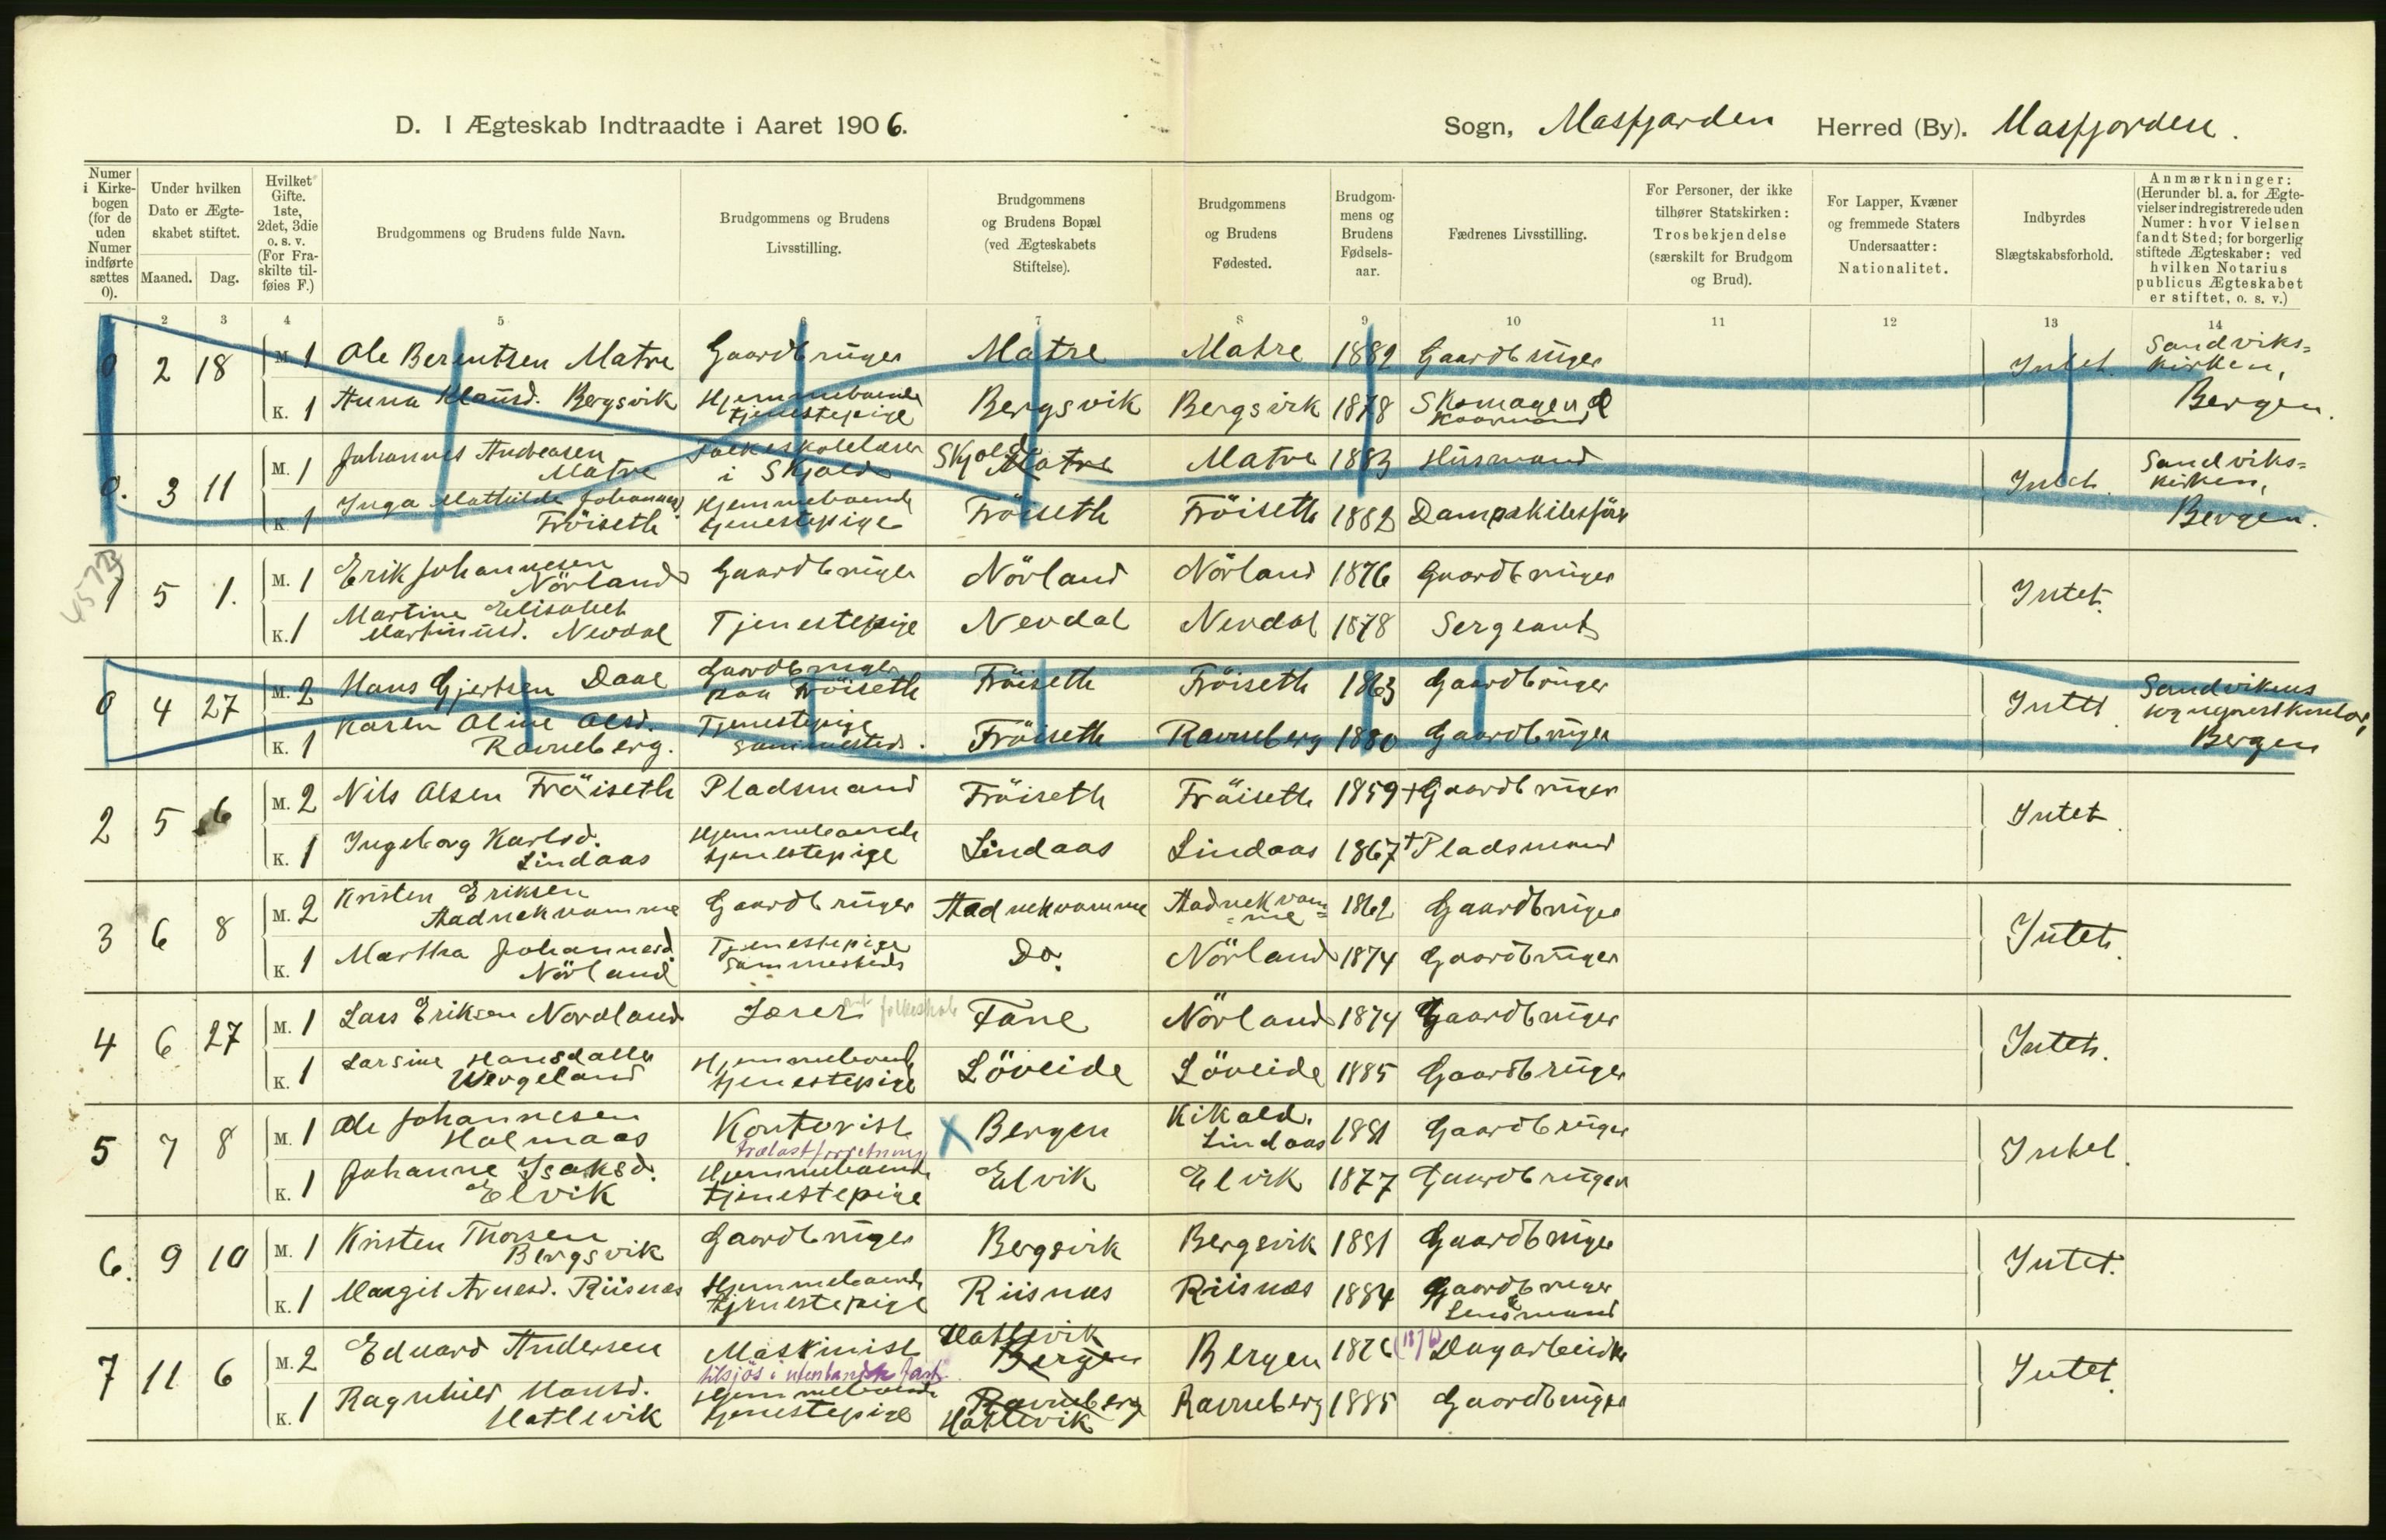 D. I Ægteskab Indtraadte i Aaret 1906.
Sogn, Masfjorden Herred (By). Masfjorden.
Numer i Kirkebogen (for de uden Numer indførte sættes 0).
Under hvilken Dato er Ægteskabet stiftet.
Maaned. Dag.
Hvilket Gifte. 1ste, 2det, 3die o. s. v. (For Fraskilte tilføies F.)
Brudgommens og Brudens fulde Navn.
Brudgommens og Brudens Livsstilling.
Brudgommens og Brudens Bopæl (ved Ægteskabets Stiftelse).
Brudgommens og Brudens Fødested.
Brudgommens og Brudens Fødselsaar.
Fædrenes Livsstilling.
For Personer, der ikke tilhører Statskirken: Trosbekjendelse (særskilt for Brudgom og Brud).
For Lapper, Kvæner og fremmede Staters Undersaatter: Nationalitet.
Indbyrdes Slægtskabsforhold.
Anmærkninger: (Herunder bl. a. for Ægtevielser indregistrerede uden Numer: hvor Vielsen fandt Sted; for borgerlig stiftede Ægteskaber: ved hvilken Notarius publicus Ægteskabet er stiftet, o. s. v.)
2 3 4 5 6 7 8 9 10 11 12 13 14
0 2 18 M. 1 Ole Berentsen Matre Gaardbruger Matre Matre 1882 Gaardbruger Intet. Sandvikskirken, Bergen.
K. 1 Anna Klausd. Bergsvik Hjemmeboende tjenestepige Bergsvik Bergsvik 1878 Skomager &
0. 3 11 M. 1 Johannes Andreasen Matre Folkeskolelærer i Skjold Skjold Matre Matre 1883 Husmand Intet. Sandvikskirken, Bergen.
K. 1 Inga Mathilde Johannesd. Fröiseth Hjemmeboende tjenestepige Fröiseth Fröiseth 1882 Dampskibsfører
1 5 1. M. 1 Erik Johannesen Nörland Gaardbruger Nörland Nörland 1876 Gaardbruger Intet.
K. 1 Martine Elisabet Martinusd. Nevdal Tjenestepige Nevdal Nevdal 1878 Sergeant
0 4 27 M. 2 Hans Gjertsen Daae Gaardbruger paa Fröiseth Fröiseth Fröiseth 1863 Gaardbruger Intet. Sandvikens sogneprestkontor, Bergen
K. 1 Karen Oline Olsd. Ravneberg. Tjenestepige sammesteds. Fröiseth Ravneberg 1880 Gaardbruger
2 5 6 M. 2 Nils Olsen Fröiseth Pladsmand Fröiseth Fröiseth 1859 + Gaardbruger Intet.
K. 1 Ingeborg Karlsd. Lindaas Hjemmeboende tjenestepige Lindaas Lindaas 1867 + Pladsmand
3 6 8 M. 2 Kristen Eriksen Aadnekvamme Gaardbruger Aadnekvamme Aadnekvam=me 1862 Gaardbruger Intet.
K. 1 Martha Johannesd. Nörland Tjenestepige sammesteds Do. Nörland 1874 Gaardbruger
4 6 27 M. 1 Lars Eriksen Nordland Lærer folkeskole Fane Nörland 1874 Gaardbruger Intet.
K. 1 Larsine Hansdatter Wergeland Hjemmeboende tjenestepige Löveide Löveide 1885 Gaardbruger
5 7 8 M. 1 Ole Johannesen Holmaas Kontorist trælastforretning X Bergen Kikald. Lindaas 1881 Gaardbruger Intet.
K. 1 Johanne Isaksd. Elvik Hjemmeboende tjenestepige Elvik Elvik 1877 Gaardbruger
6. 9 10 M. 1 Kristen Thorsen Bergsvik Gaardbruger Bergsvik Bergsvik 1881 Gaardbruger Intet.
K. 1 Margit Arnesd. Riisnæs Hjemmeboende tjenestepige Riisnæs Riisnæs 1884 Gaardbruger & Lensmand
7 11 6 M. 2 Edvard Andersen Maskinist tilsjös i utenlandsk fart. Hatlevik Bergen Bergen 1876 (1876) Dagarbeider Intet.
K. 1 Ragnhild Hansd. Hatlevik Hjemmeboende tjenestepige Ravneberg Hatlevik Ravneberg 1885 Gaardbruger